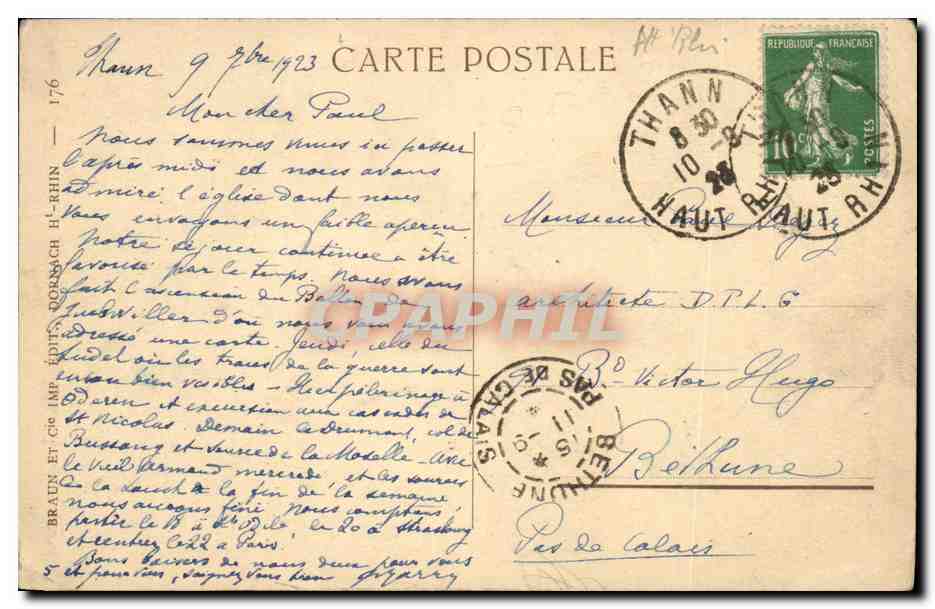 Thann 9 7bre 1923
CARTE POSTALE
Mon cher Paul
Nous sommes venus ici passer
l'après midi et nous avons
admiré l'église dont nous
vous envoyons un faible aperçu
Notre séjour continue à être
favorisé par le temps. Nous avons
fait l'ascension du Ballon de
Guebwiller d'où nous vous avons
adressé une carte. Jeudi, celle du
Sudel où les traces de la guerre sont
encore bien visibles - Hier pèlerinage à
Oderen et excursion aux cascades de
St Nicolas. Demain le Drumont, col de
Bussang et source de la Moselle - Avec
le Vieil Armand mercredi et les sources
de la à la fin de la semaine
nous aurons fini. Nous comptons
partir le 18 à le 20 à Strasbourg
et rentrer le 22 à Paris.
Bons baisers de nous deux pour vous
et pour vous, soignez vous bien
5
BRAUN ET Cie IMP. ÉDITS DORNACH Ht-RHIN — 176
REPUBLIQUE FRANÇAISE
10 c
POSTES
THANN
8 30
10 -9
23
HAUT RHIN
THANN
10 -9
23
HAUT RHIN
Monsieur Paul
architecte D.P.L.G
Bd Victor Hugo
Béthune
Pas de Calais
BETHUNE
5
11 -9
PAS DE CALAIS
CPAPHIL